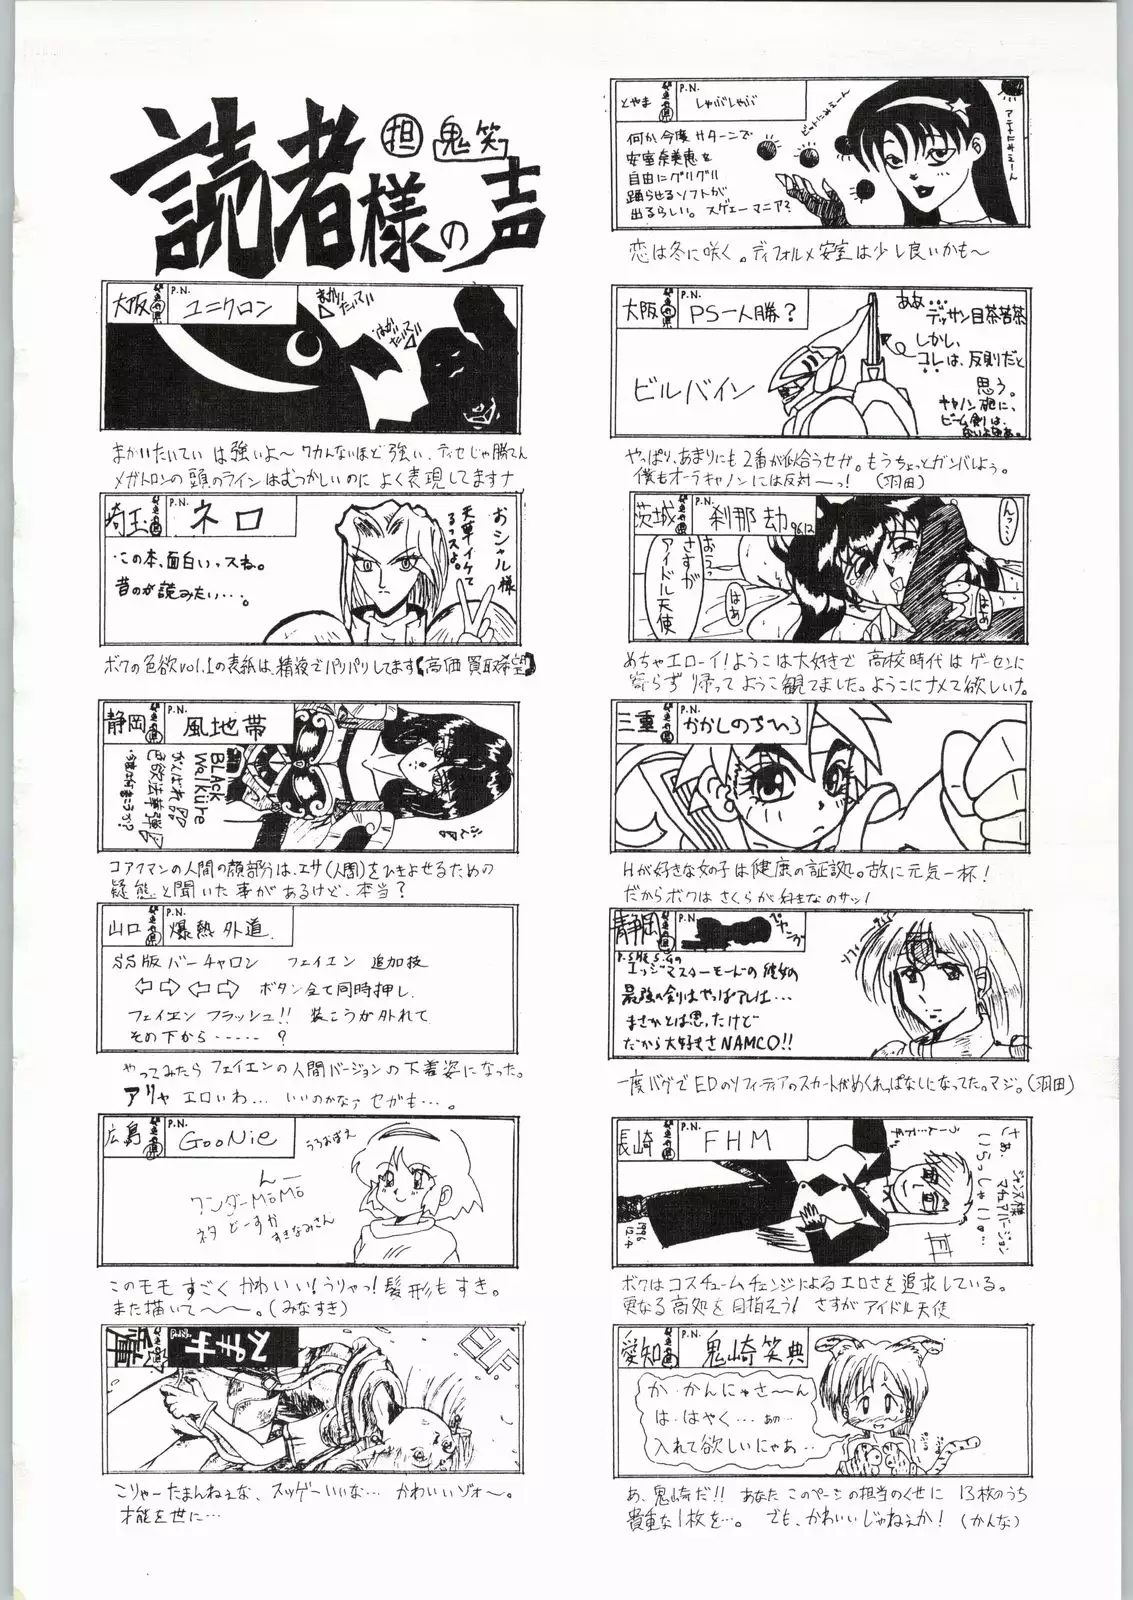 読者様の声
担 鬼笑
大阪
P.N.
ユニクロン
まかい!たいてい
はかいたいてい
まかいたいてい は強いよ〜 ワカんないほど強い、ティセじゃ勝てん
メガトロンの頭のラインはむづかしいのに よく表現してますナ
埼玉
P.N.
ネロ
この本、面白いっスね。
昔のが読みたい・・・。
おシャル様
天草イケてるっスよ。
ボクの色欲vol.1の表紙は、精液でバリバリしてます【高価買取希望】
静岡
P.N.
風地帯
BLACK
Walküre
がんばれ
色欲法華弾
コアクマンの人間の顔部分は、エサ(人間)をひきよせるための
疑態と聞いた事があるけど、本当?
山口
P.N.
爆熱外道
SS版バーチャロン フェイエン 追加技
⇦⇨⇦⇨ ボタン全て同時押し.
フェイエン フラッシュ!! 装こうが外れて
その下から・・・・・・?
やってみたら フェイエンの人間バージョンの下着姿になった。
アリャ エロいわ... いいのかなァ セガも...。
広島
P.N.
GooNie
うろおぼえ
んー
ワンダーMōMō
ネタ どーすか
すきなみさん
このモモ すごく かわいい!うりゃっ!髪形もすき。
また描いて〜〜。(みなすき)
P.N.
こりゃーたまんねぇな、スッゲーいいな... かわいいゾォ〜。
才能を世に...
とやま
P.N.
しゃぶしゃぶ
何か今度サターンで
安室奈美恵を
自由にグリグリ
踊らせるソフトが
出るらしい。スゲェーマニア?
恋は冬に咲く。ディフォルメ安室は少し良いかも〜
大阪
P.N.
PS一人勝?
ビルバイン
ああ...
デッサン目茶苦茶
しかし、
コレは、反則だと
思う。
キャノン砲に、
ビーム剣は、
やっぱり、あまりにも2番が似合うセガ。もうちょっとガンバしよう。
僕もオーラキャノンには反対〜っ! (羽田)
茨城
P.N.
刹那劫
96.12
さすが
アイドル天使
はあ
はぁ
めちゃエローイ!ようこは大好きで 高校時代はゲーセンに
寄らず帰ってようこ観てました。ようこにナメて欲しいナ。
三重
P.N.
かかしのちひろ
Hが好きな女の子は健康の証拠。故に元気一杯!
だからボクは さくらが好きなのサッ!
静岡
P.N.
エッジマスターモードの彼女の
最強の剣はやっぱアレは...
まさかとは思ったけど
だから大好きさNAMCO!!
一度バグでEDのソフィーティアのスカートがめくれっぱなしになってた。マジ。(羽田)
長崎
P.N.
FHM
さぁ、いらっしゃい...
1996
12.4
ボクはコスチュームチェンジによるエロさを追求している。
更なる高処を目指そう! さすがアイドル天使
愛知
P.N.
鬼崎笑典
か・かんにゃさ〜ん
は・はやく... あの...
入れて欲しいにゃあ..
あ、鬼崎だ!! あなた このページの担当のくせに 13枚のうち
貴重な1枚を...。 でも、かわいいじゃねぇか! (かんな)